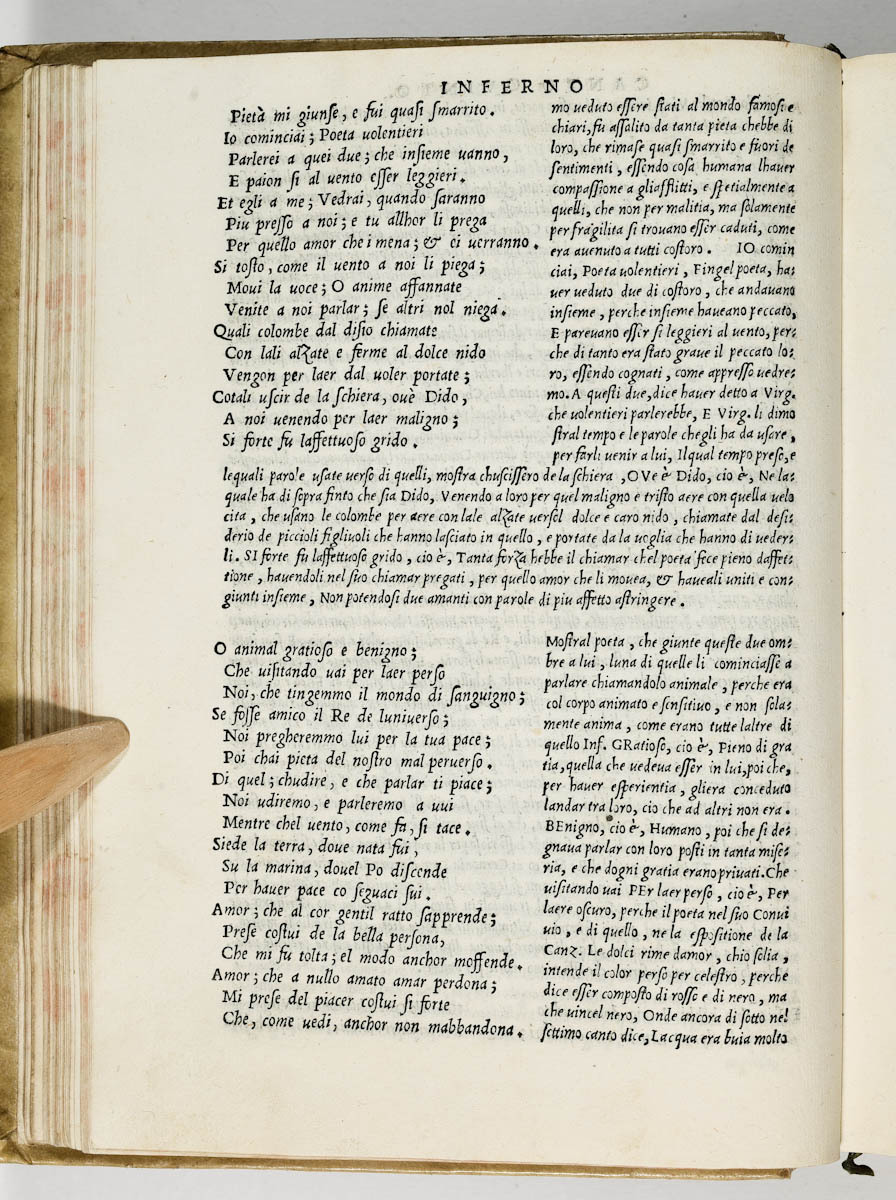 INFERNO
Pietà mi giunse, e fui quasi smarrito.
Io cominciai; Poeta uolentieri
Parlerei a quei due; che insieme uanno,
E paion si al uento esser leggieri.
Et egli a me; Vedrai, quando saranno
Piu presso a noi; e tu allhor li prega
Per quello amor che i mena; & ei uerranno.
Si tosto, come il uento a noi li piega;
Moui la uoce; O anime affannate
Venite a noi parlar; se altri nol niega.
Quali colombe dal disio chiamate
Con lali alzate e ferme al dolce nido
Vengon per laer dal uoler portate;
Cotali uscir de la schiera, ouè Dido,
A noi uenendo per laer maligno;
Si forte fu laffettuoso grido.
mo ueduto essere stati al mondo famosi e
chiari, fu assalito da tanta pieta chebbe di
loro, che rimase quasi smarrito e fuori de
sentimenti, essendo cosa humana lhauer
compassione a gliafflitti, e spetialmente a
quelli, che non per malitia, ma solamente
per fragilita si trouano esser caduti, come
era auenuto a tutti costoro. IO comin
ciai, Poeta uolentieri, Fingel poeta, ha-
uer ueduto due di costoro, che andauano
insieme, perche insieme haueano peccato,
E pareuano esser si leggieri al uento, per-
che di tanto era stato graue il peccato lo-
ro, essendo cognati, come appresso uedre-
mo. A questi due, dice hauer detto a Virg.
che uolentieri parlerebbe, E Virg. li dimo
stral tempo e le parole chegli ha da usare,
per farli uenir a lui, Ilqual tempo preso, e
lequali parole usate uerso di quelli, mostra chuscissero de la schiera, OVe è Dido, cio è, Ne la-
quale ha di sopra finto che sia Dido, Venendo a loro per quel maligno e tristo aere con quella uelo
cita, che usano le colombe per aere con lale alzate uersol dolce e caro nido, chiamate dal desi-
derio de piccioli figliuoli che hanno lasciato in quello, e portate da la uoglia che hanno di ueder-
li. SI forte fu laffettuoso grido, cio è, Tanta forza hebbe il chiamar chel poeta fece pieno daffet-
tione, hauendoli nel suo chiamar pregati, per quello amor che li mouea, & haueali uniti e con-
giunti insieme, Non potendosi due amanti con parole di piu affetto astringere.
O animal gratioso e benigno;
Che uisitando uai per laer perso
Noi, che tingemmo il mondo di sanguigno;
Se fosse amico il Re de luniuerso;
Noi pregheremmo lui per la tua pace;
Poi chai pieta del nostro mal peruerso.
Di quel; chudire, e che parlar ti piace;
Noi udiremo, e parleremo a uui
Mentre chel uento, come fa, si tace.
Siede la terra, doue nata fui,
Su la marina, douel Po discende
Per hauer pace co seguaci sui.
Amor; che al cor gentil ratto sapprende;
Prese costui de la bella persona,
Che mi fu tolta; el modo anchor moffende.
Amor; che a nullo amato amar perdona;
Mi prese del piacer costui si forte
Che, come uedi, anchor non mabbandona.
Mostral poeta, che giunte queste due om-
bre a lui, luna di quelle li cominciasse a
parlare chiamandolo animale, perche era
col corpo animato e sensitiuo, e non sola-
mente anima, come erano tutte laltre di
quello Inf. GRatioso, cio è, Pieno di gra
tia, quella che uedeua esser in lui, poi che,
per hauer esperientia, gliera conceduto
landar tra loro, cio che ad altri non era.
BEnigno, cio è, Humano, poi che si de-
gnaua parlar con loro posti in tanta mise-
ria, e che dogni gratia erano priuati. Che
uisitando uai PEr laer perso, cio è, Per
laere oscuro, perche il poeta nel suo Conui
uio, e di quello, ne la espositione de la
Canz. Le dolci rime damor, chio solia,
intende il color perso per celestro, perche
dice esser composto di rosso e di nero, ma
che uincel nero, Onde ancora di sotto nel
settimo canto dice, Lacqua era buia molto